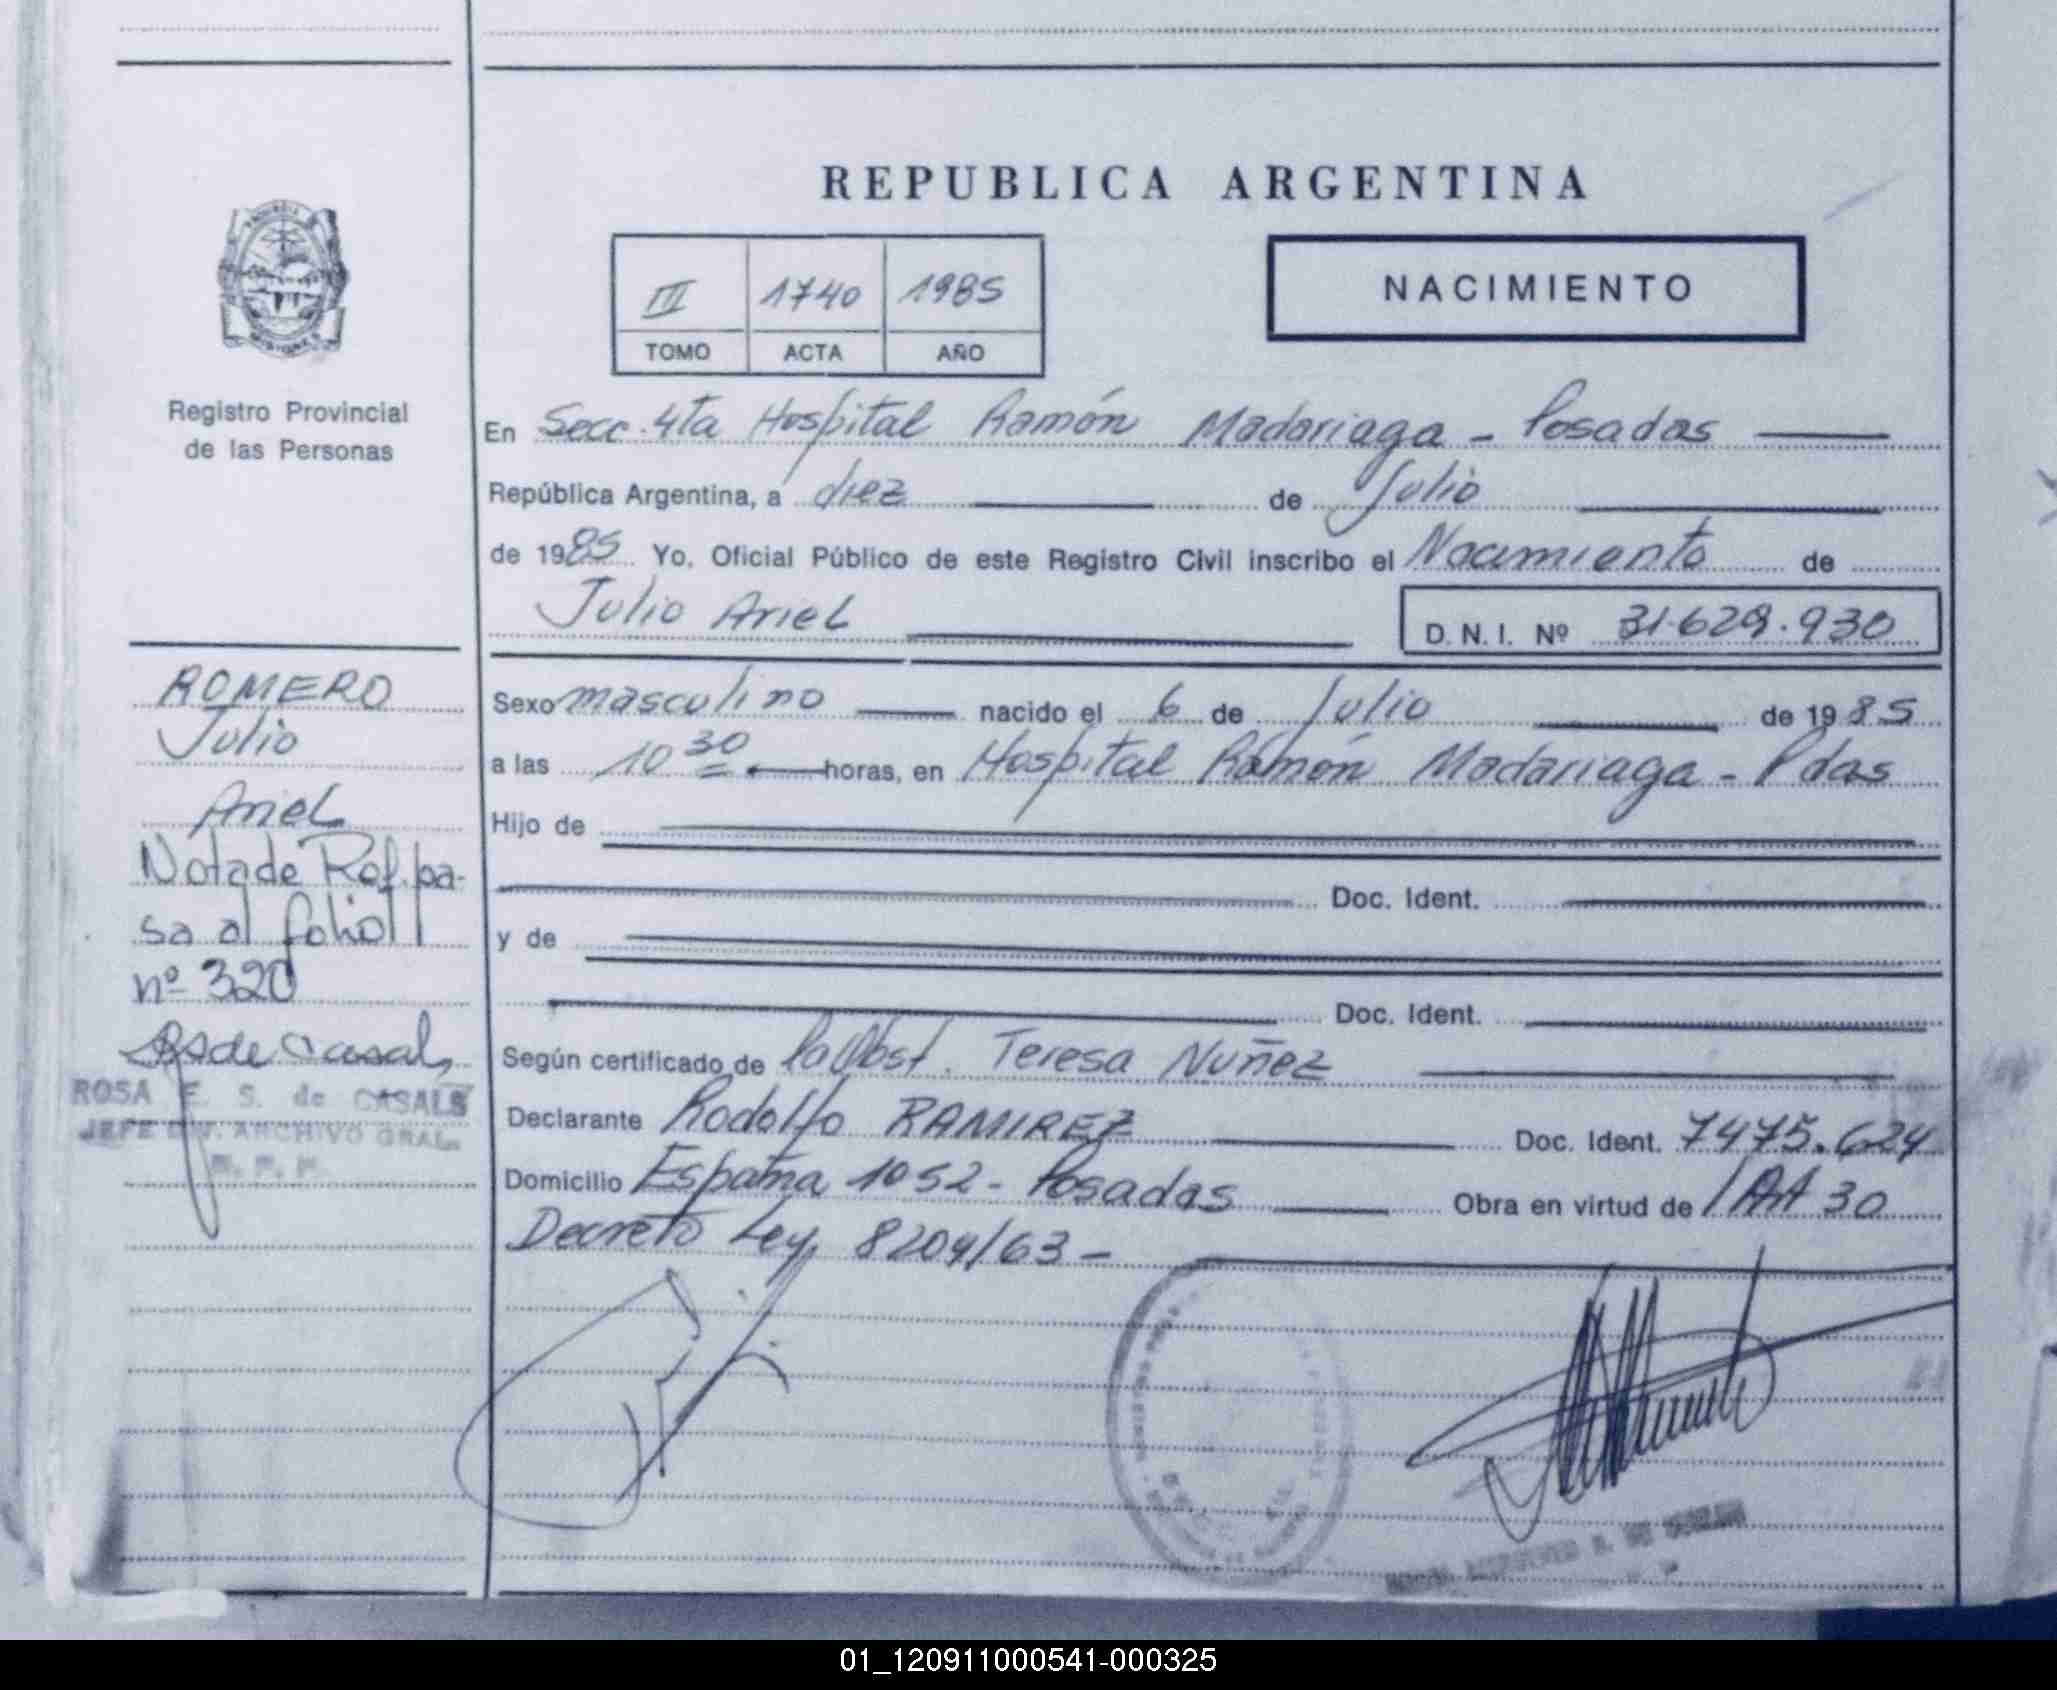 REPUBLICA ARGENTINA
III 1740 1985
TOMO ACTA AÑO
NACIMIENTO
Registro Provincial
de las Personas
En Secc. 4ta Hospital Ramón Madariaga - Posadas
República Argentina, a diez de Julio
de 1985 Yo, Oficial Público de este Registro Civil inscribo el Nacimiento de
Julio Ariel
D. N. I. Nº 31.629.930
ROMERO
Julio
Ariel
Nota de Ref. pa-
sa al folio
nº 320
ROSA E. S. de CASALS
JEFE DIV. ARCHIVO GRAL.
Sexo masculino nacido el 6 de Julio de 1985
a las 10 30 horas, en Hospital Ramón Madariaga - Pdas
Hijo de
Doc. Ident.
y de
Doc. Ident.
Según certificado de la Obst. Teresa Nuñez
Declarante Rodolfo RAMIREZ Doc. Ident. 7475.624
Domicilio España 1052 - Posadas Obra en virtud de Art 30
Decreto Ley 8204/63 -
01_120911000541-000325